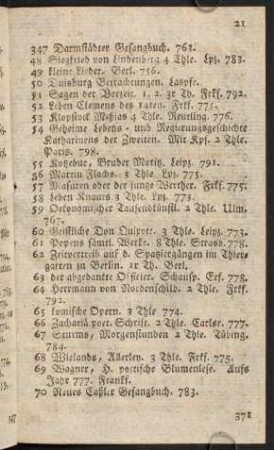 21
347 Darmstädter Gesangbuch. 763.
48 Siegfried von Lindenberg 4 Thle. Lpz. 783.
49 kleine Lieder. Berl. 756.
50 Duisburg Betrachtungen.
51 Sagen der Vorzeit. 1. 2. 3r Th. Frkf. 792.
52 Leben Clemens des 14ten. Frkf. 775.
53 Klopstock Meßias 4 Thle. Reutling. 776.
54 Geheime Lebens- und Regierungsgeschichte
Katharinens der Zweiten. Mit Kpf. 2 Thle.
Paris. 798.
55 Kotzebue, Bruder Moritz. Leipz. 791.
56 Martin Flachs. 2 Thle Lpz. 775.
57 Masuren oder der junge Werther. Frkf. 775.
58 Leben Knauts 3 Thle. 773.
59 Oekonomischer Tausendkünstl. 2 Thle. Ulm.
767.
60 Geistliche Don Quixote. 3 Thle. Leipz. 773.
61 Popens sämtl. Werke. 8 Thle. Strasb. 778.
62 Zeitvertreib auf d. Spatziergängen im Thier
garten zu Berlin. 1r Th. Berl.
63 der abgedankte Officier. Schausp. Erf. 778.
64 Herrmann von Nordenschild. 2 Thle. Frkf.
792.
65 komische Opern. 2 Thle 774.
66 Zachariä poet. Schrift. 2 Thle. Carlsr. 777.
67 Sturms, Morgenstunden 2 Thle. Tübing.
784.
68 Wielands, Allerley. 3 Thle. Frkf. 775.
69 Wagner, H. poetische Blumenlese. Aufs
Jahr 777. Frankf.
70 Neues Caßler Gesangbuch. 783.
371